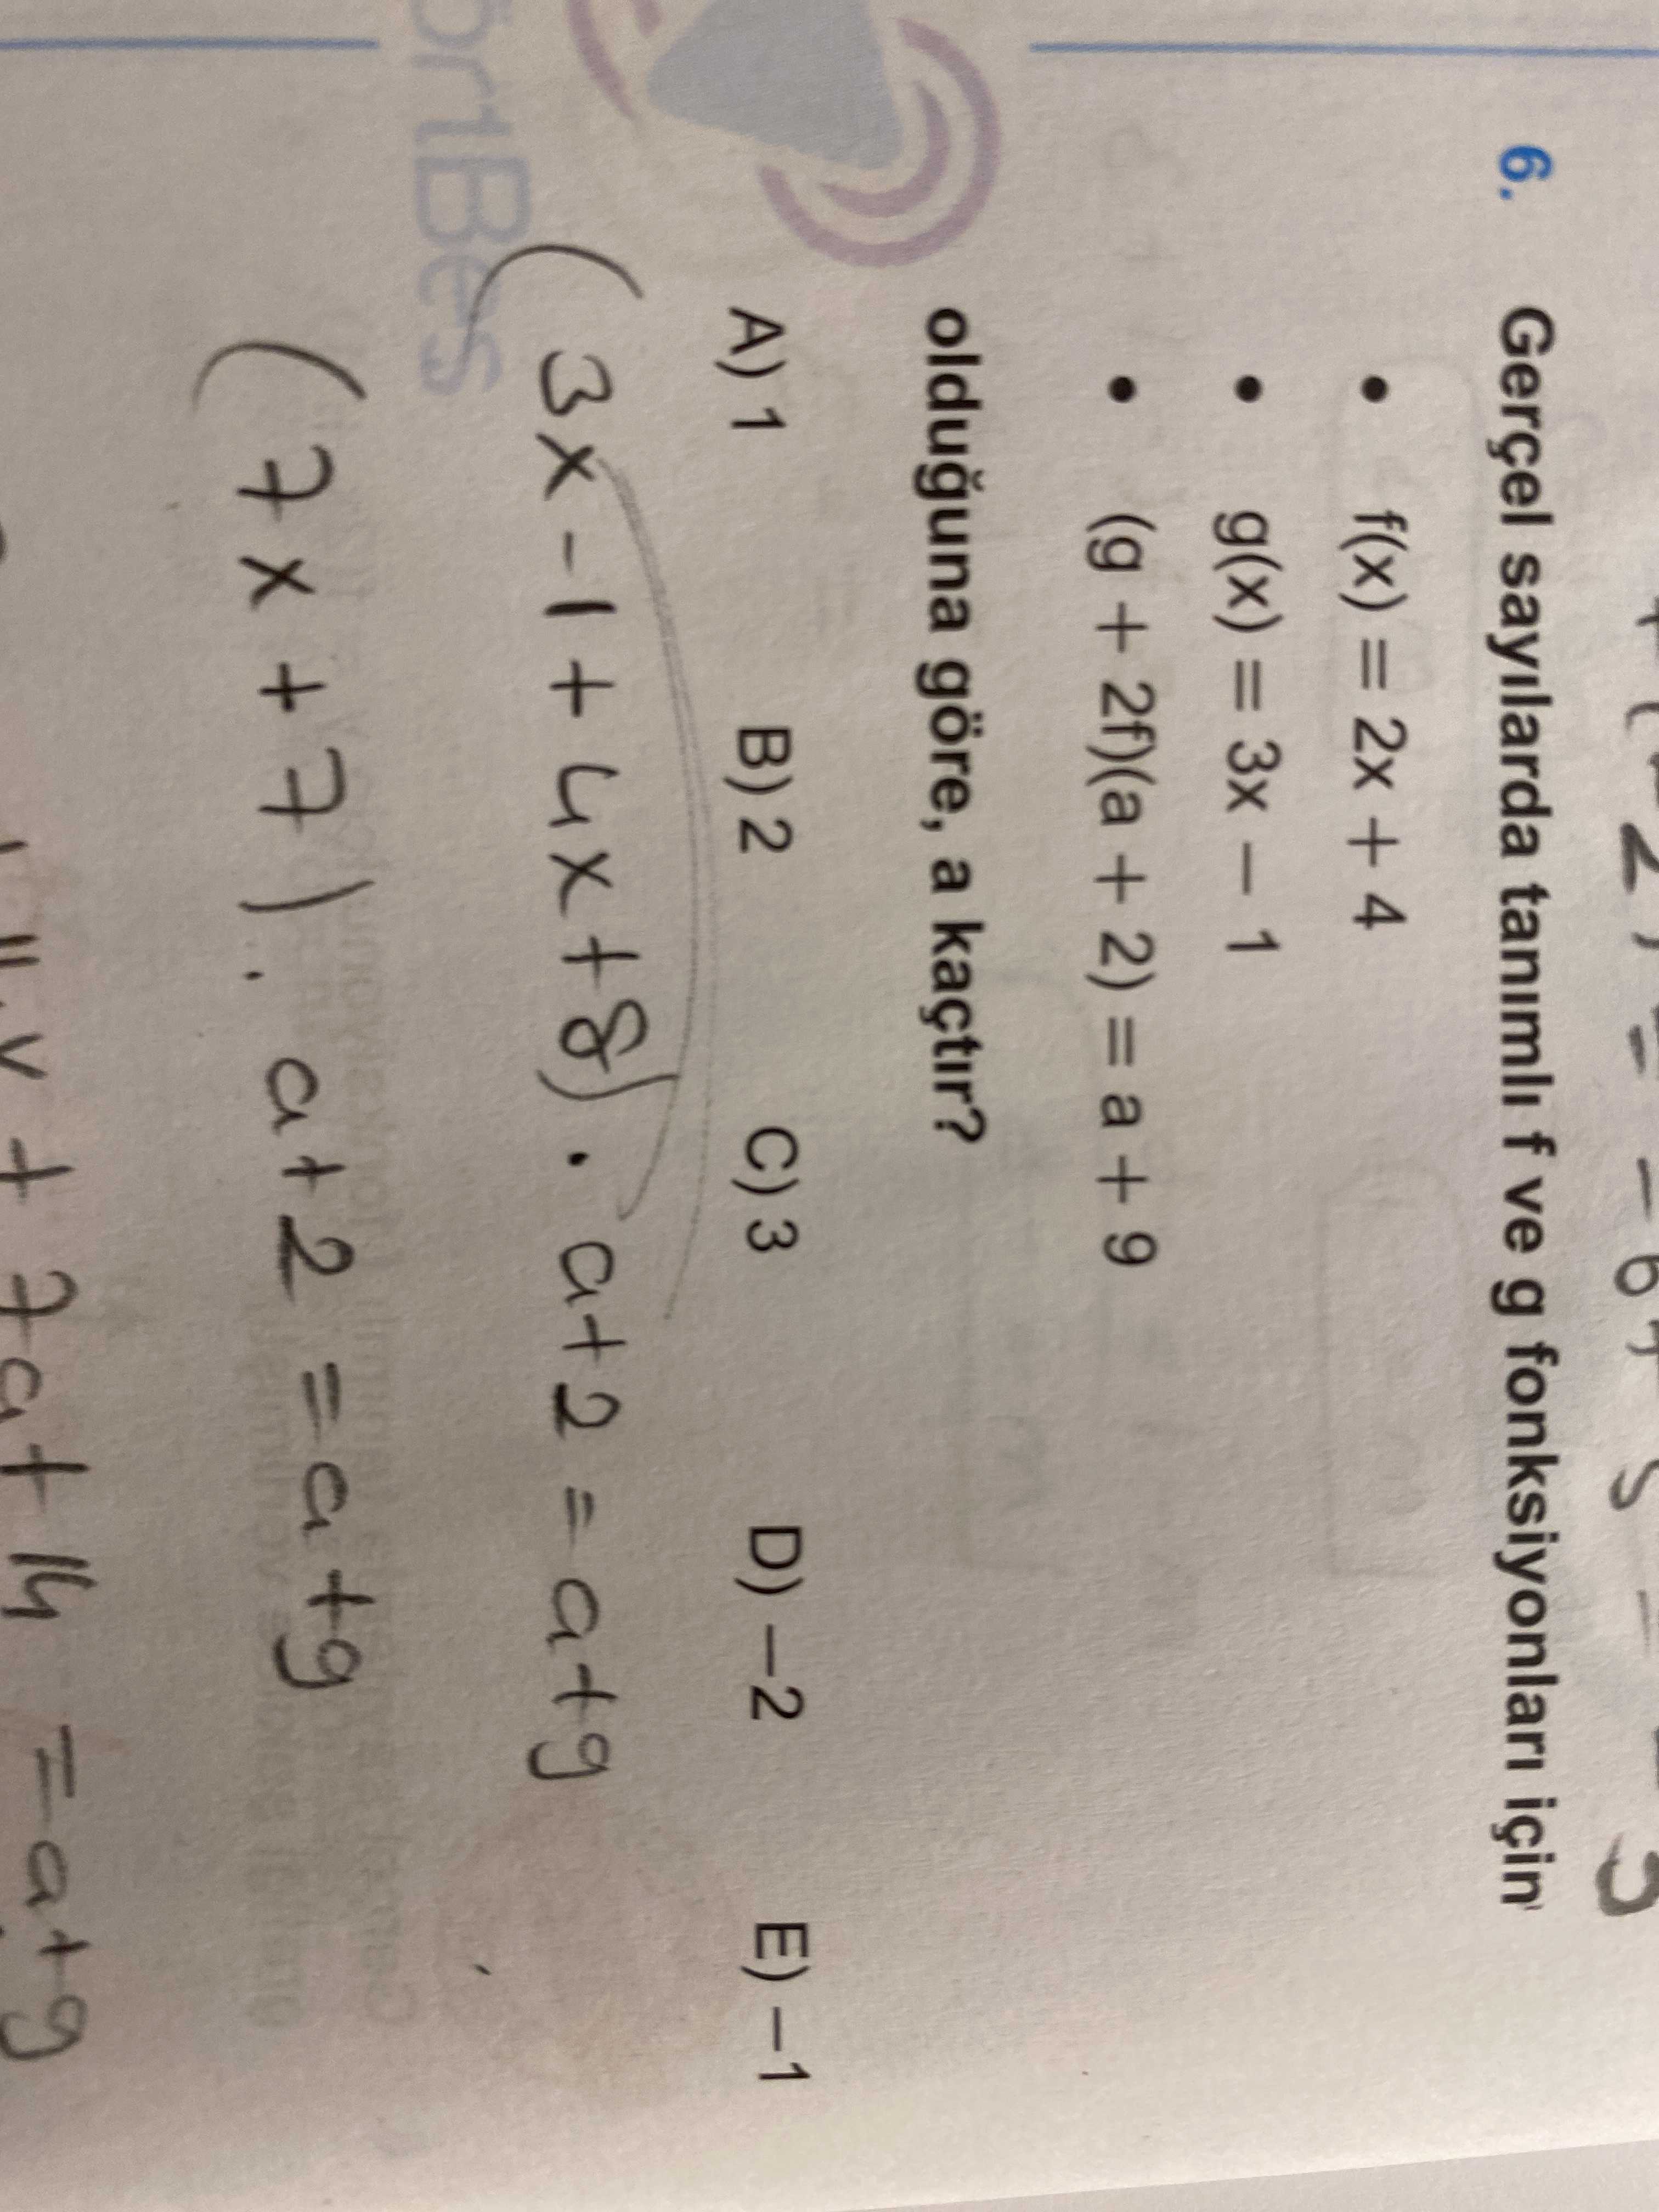 6. Gerçel sayılarda tanımlı f ve g fonksiyonları için
• f(x) = 2x + 4
• g(x) = 3x − 1
• (g + 2f)(a + 2) = a + 9
olduğuna göre, a kaçtır?
A) 1 B) 2 C) 3 D) −2 E) −1
(3x-1+4x+8) · a+2 = a+9
(7x+7). a+2 = a+9
+ 7a+14 = a+9